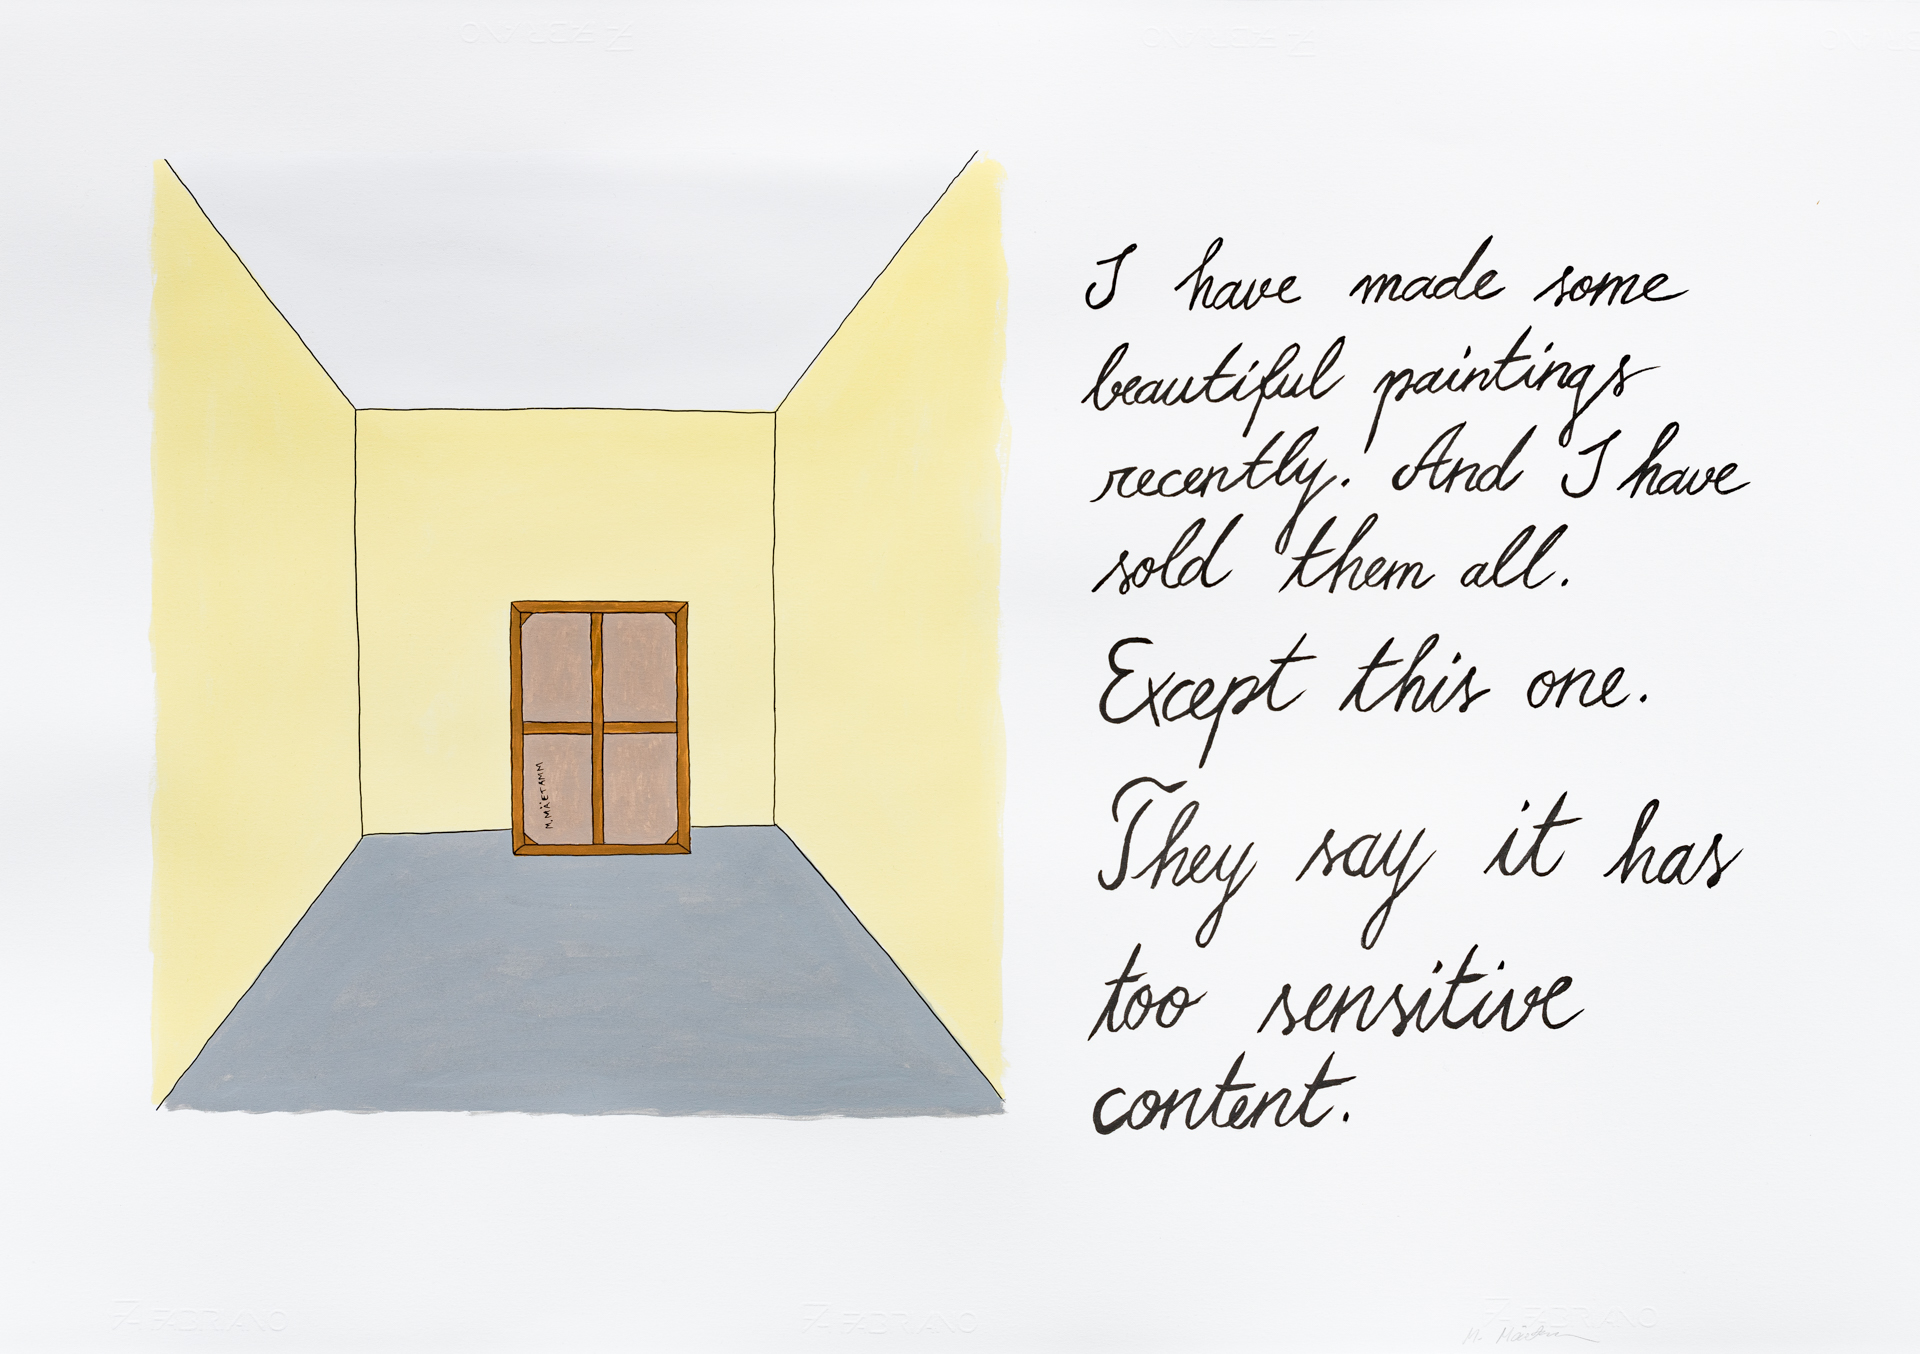 I have made some
beautiful paintings
recently. And I have
sold them all.
Except this one.
They say it has
too sensitive
content.
M. MÄETAMM
FABRIANO
FABRIANO
FABRIANO
FABRIANO
FABRIANO